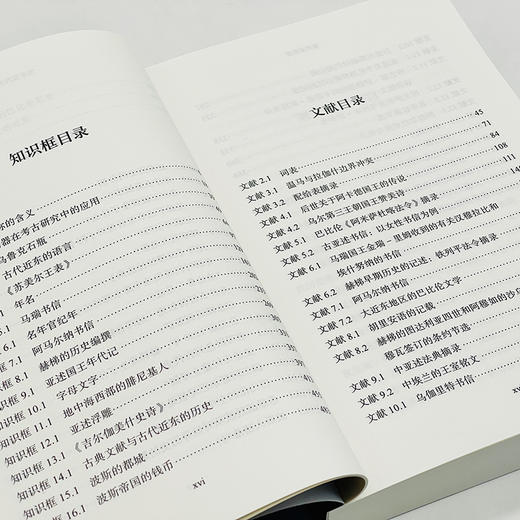 知识框目录
的含义
器在考古研究中的应用
乌鲁克石瓶
古代近东的语言
《苏美尔王表》
年名
5.1 马瑞书信
框 6.1 名年官纪年
框 7.1 阿马尔纳书信
识框 8.1 赫梯的历史编撰
识框 9.1 亚述国王年代记
识框 10.1 字母文字
识框 11.1 地中海西部的腓尼基人
知识框 12.1 亚述浮雕
知识框 13.1 《吉尔伽美什史诗》
知识框 14.1 古典文献与古代近东的历史
知识框 15.1 波斯的都城
16.1 波斯帝国的钱币
xvi
文献目录
文献 2.1 词表 45
文献 3.1 温马与拉伽什边界冲突 71
文献 3.2 配给表摘录 84
文献 4.1 后世关于阿卡德国王的传说 108
文献 4.2 乌尔第三王朝国王赞美诗 111
文献 5.1 巴比伦《阿米萨杜喀法令》摘录
文献 5.2 古亚述书信:以女性书信为例
文献 6.1 马瑞国王金瑞-里姆收到的有关汉穆拉比和
埃什努纳的书信
文献 6.2 赫梯早期历史的记述:铁列平法令摘录
文献 7.1 阿马尔纳书信
文献 7.2 大近东地区的巴比伦文学
文献 8.1 胡里安语的记载
文献 8.2 赫梯的图达利亚四世和阿穆如的沙乌
穆瓦签订的条约节选
文献 9.1 中亚述法典摘录
文献 9.2 中埃兰的王室铭文
文献 10.1 乌伽里特书信